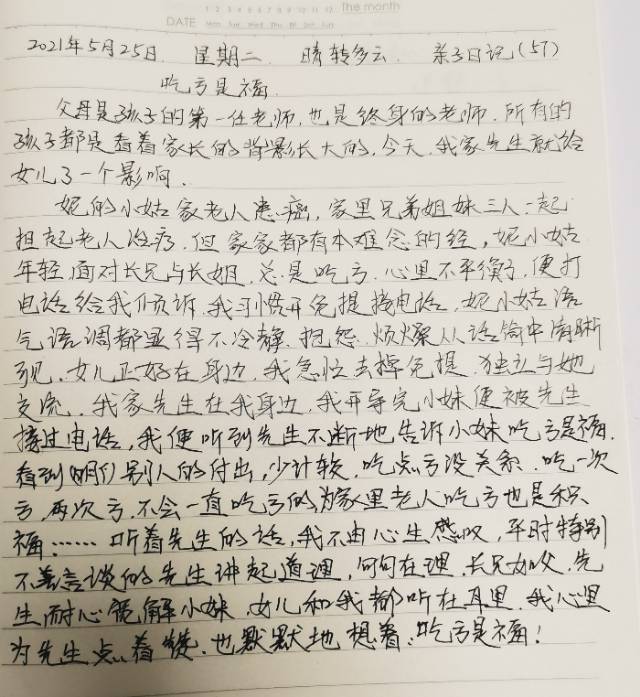 1 2 3 4 5 6 7 8 9 10 11 12 the month
DATE Mon Tue Wed Thu Fri Sat Sun
2021年5月25日 星期二 晴转多云 亲子日记(57)
吃亏是福
父母是孩子的第一任老师,也是终身的老师.所有的
孩子都是看着家长的背影长大的,今天,我家先生就给
女儿了一个影响.
妮的小姑家老人患癌,家里兄弟姐妹三人一起
担起老人治疗,但家家都有本难念的经,妮小姑
年轻,面对长兄与长姐,总是吃亏.心里不平衡了,便打
电话给我们倾诉,我习惯开免提接电话,妮小姑语
气语调都显得不冷静,抱怨、烦燥从话筒中清晰
可见,女儿正好在身边,我急忙去掉免提,独立与她
交流,我家先生在我身边,我开导完小妹便被先生
接过电话,我便听到先生不断地告诉小妹吃亏是福.
看到咱们别人的付出,少计较,吃点亏没关系,吃一次
亏,两次亏,不会一直吃亏的,为家里老人吃亏也是积
福……听着先生的话,我不由心生感叹,平时特别
不善言谈的先生讲起道理,句句在理,长兄如父,先
生耐心解小妹,女儿和我都听在耳里,我心里
为先生点着赞,也默默地想着:吃亏是福!